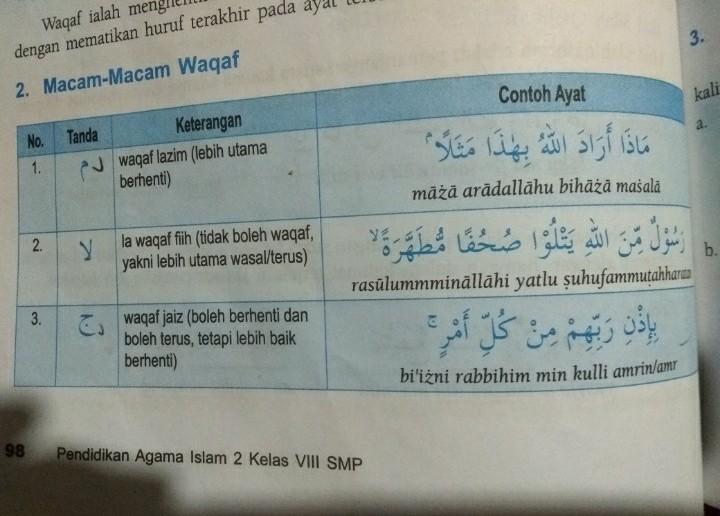 Waqaf ialah
dengan mematikan huruf terakhir pada ayat
2. Macam-Macam Waqaf
No. Tanda Keterangan Contoh Ayat
1. م waqaf lazim (lebih utama
berhenti)
مَاذَا أَرَادَ اللهُ بِهٰذَا مَثَلًا ۘ
māżā arādallāhu bihāżā maṡalā
2. لا la waqaf fiih (tidak boleh waqaf,
yakni lebih utama wasal/terus)
رَسُوْلٌ مِّنَ اللهِ يَتْلُوْا صُحُفًا مُّطَهَّرَةً ۙ
rasūlummmināllāhi yatlu ṣuhufammuṭahharatan
3. ج waqaf jaiz (boleh berhenti dan
boleh terus, tetapi lebih baik
berhenti)
بِإِذْنِ رَبِّهِمْ مِنْ كُلِّ أَمْرٍ ۚ
bi'iżni rabbihim min kulli amrin/amr
98 Pendidikan Agama Islam 2 Kelas VIII SMP
3.
kali
a.
b.